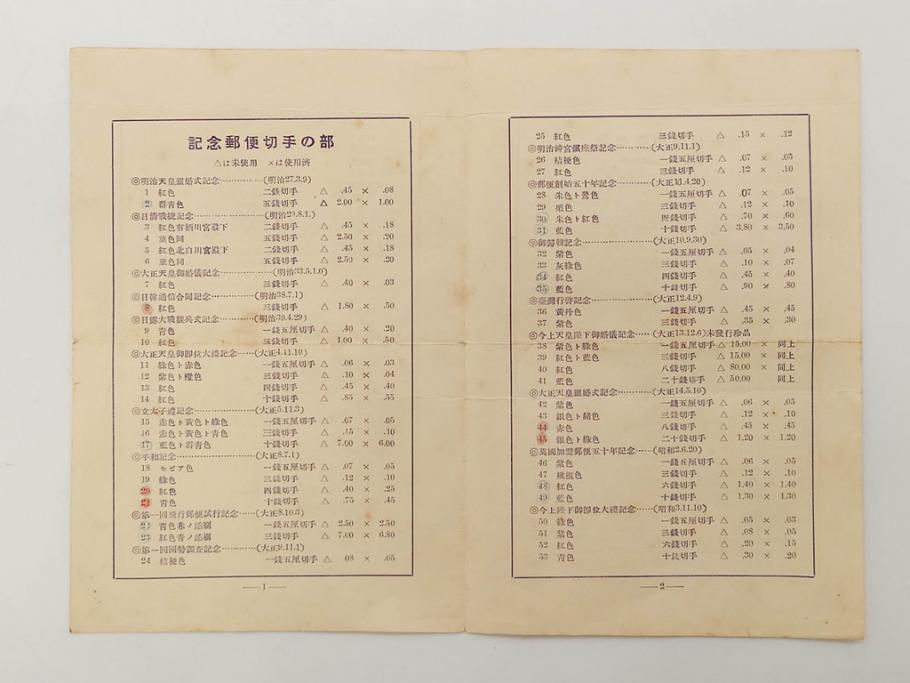 記念郵便切手の部
△は未使用 ×は使用濟
◎明治天皇銀婚式記念…………(明治27.3.9)
1 紅色 二錢切手 △ .45 × .08
2 群青色 五錢切手 △ 2.00 × 1.00
◎日淸戰捷記念………………(明治29.8.1)
3 紅色有栖川宮殿下 二錢切手 △ .45 × .18
4 菫色同 五錢切手 △ 2.50 × .20
5 紅色北白川宮殿下 二錢切手 △ .45 × .18
6 菫色同 五錢切手 △ 2.50 × .20
◎大正天皇御婚儀記念………………(明治33.5.10)
7 紅色 三錢切手 △ .40 × .03
◎日韓通信合同記念…………(明治38.7.1)
8 紅色 三錢切手 △ 1.80 × .50
◎日露大戰觀兵式記念………(明治39.4.29)
9 靑色 一錢五厘切手 △ .40 × .20
10 紅色 三錢切手 △ 1.00 × .50
◎大正天皇御卽位大禮記念……(大正4.11.10)
11 綠色ト赤色 一錢五厘切手 △ .06 × .03
12 紫色ト橙色 三錢切手 △ .10 × .04
13 紅色 四錢切手 △ .45 × .40
14 紅色 十錢切手 △ .85 × .55
◎立太子禮記念………………(大正5.11.3)
15 赤色ト黃色ト綠色 一錢五厘切手 △ .07 × .05
16 赤色ト黃色ト靑色 三錢切手 △ .15 × .10
17 藍色ト群靑色 十錢切手 △ 7.00 × 6.00
◎平和記念……………………(大正8.7.1)
18 セピア色 一錢五厘切手 △ .07 × .05
19 綠色 三錢切手 △ .12 × .10
20 紅色 四錢切手 △ .40 × .25
21 靑色 十錢切手 △ .75 × .45
◎第一回飛行郵便試行記念……(大正8.10.3)
22 靑色赤ノ添刷 一錢五厘切手 △ 2.50 × 2.50
23 紅色靑ノ添刷 三錢切手 △ 7.00 × 6.80
◎第一回國勢調査記念…………(大正9.11.1)
24 桔梗色 一錢五厘切手 △ 08 × .05
—1—
25 紅色 三錢切手 △ .15 × .12
◎明治神宮鎭座祭記念…………(大正9.11.1)
26 桔梗色 一錢五厘切手 △ .07 × .05
27 紅色 三錢切手 △ .12 × .10
◎郵便創始五十年記念…………(大正10.4.20)
28 朱色ト鶯色 一錢五厘切手 △ .07 × .05
29 栗色 三錢切手 △ .12 × .10
30 朱色ト紅色 四錢切手 △ .70 × .60
31 藍色 十錢切手 △ 3.80 × 3.50
◎御歸朝記念……………………(大正10.9.30)
32 紫色 一錢五厘切手 △ .05 × .04
33 灰綠色 三錢切手 △ .10 × .07
34 紅色 四錢切手 △ .45 × .40
35 藍色 十錢切手 △ .90 × .80
◎臺灣行啓記念…………………(大正12.4.9)
36 黃丹色 一錢五厘切手 △ .45 × .45
37 紫色 三錢切手 △ .35 × .30
◎今上天皇陛下御婚儀記念……(大正13.12.6)未發行珍品
38 紫色ト綠色 一錢五厘切手 △ 15.00 × 同上
39 紅色ト藍色 三錢切手 △ 15.00 × 同上
40 紅色 八錢切手 △ 80.00 × 同上
41 藍色 二十錢切手 △ 50.00 同上
◎大正天皇銀婚式記念…………(大正14.5.10)
42 紫色 一錢五厘切手 △ .06 × .05
43 銀色ト橙色 三錢切手 △ .12 × .10
44 赤色 八錢切手 △ .45 × .45
45 銀色ト綠色 二十錢切手 △ 1.20 × 1.20
◎萬國加盟郵便五十年記念……(昭和2.6.20)
46 紫色 一錢五厘切手 △ .06 × .05
47 橄欖色 三錢切手 △ .12 × .10
48 紅色 六錢切手 △ 1.40 × 1.40
49 藍色 十錢切手 △ 1.30 × 1.30
◎今上陛下御卽位大禮記念……(昭和3.11.10)
50 綠色 一錢五厘切手 △ .05 × .03
51 紫色 三錢切手 △ .08 × .05
52 紅色 六錢切手 △ .20 × .15
53 靑色 十錢切手 △ .30 × .20
—2—